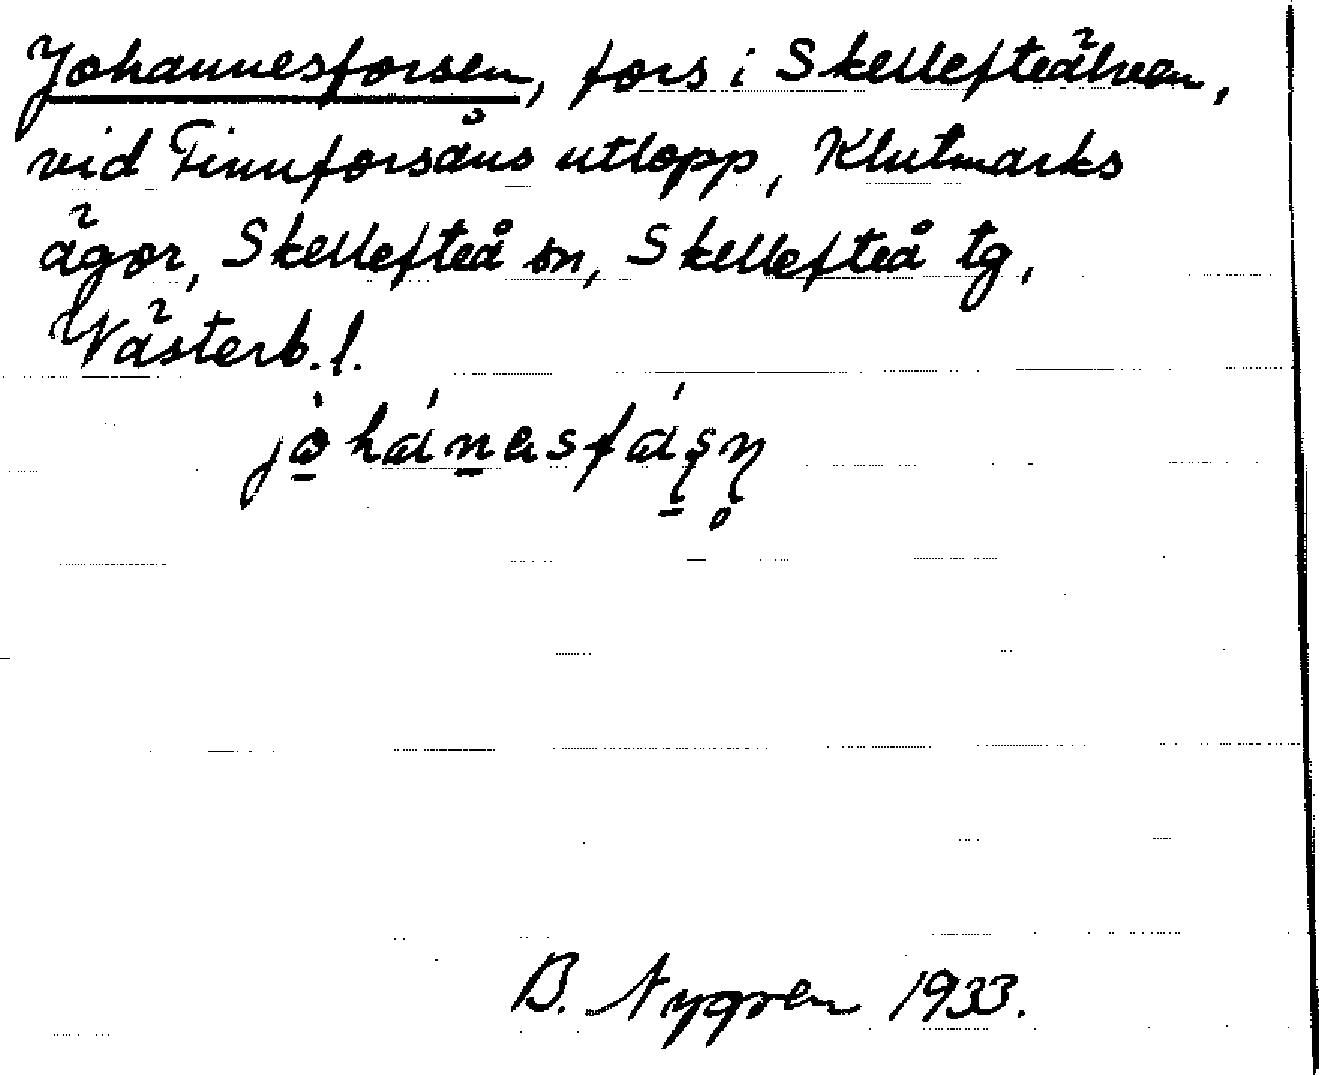 Johannesforsen, fors i Skellefteälven,
vid Finnforsåns utlopp, Klutmarks
ägor, Skellefteå sn, Skellefteå tg,
Västerb. l.
B. Nygren 1933.